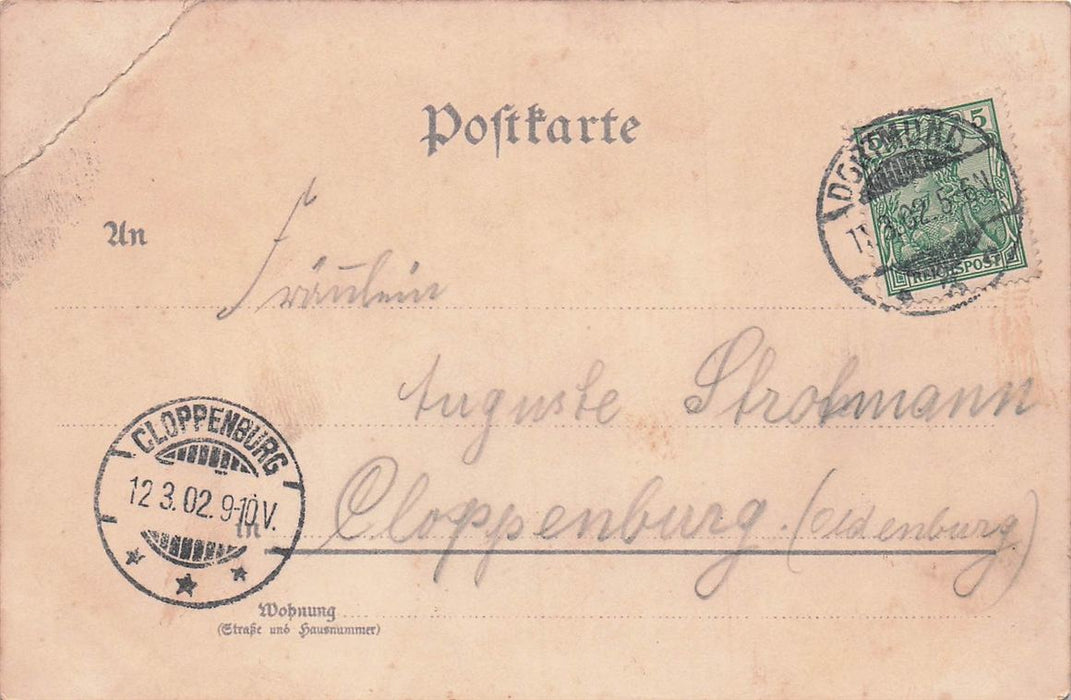 Postkarte
DORTMUND
3.02. 5-6
5
REICHSPOST
An
Fräulein
Auguste Strotmann
CLOPPENBURG
12 3. 02. 9-10 V.
in
Cloppenburg. (Oldenburg)
Wohnung
(Straße und Hausnummer)